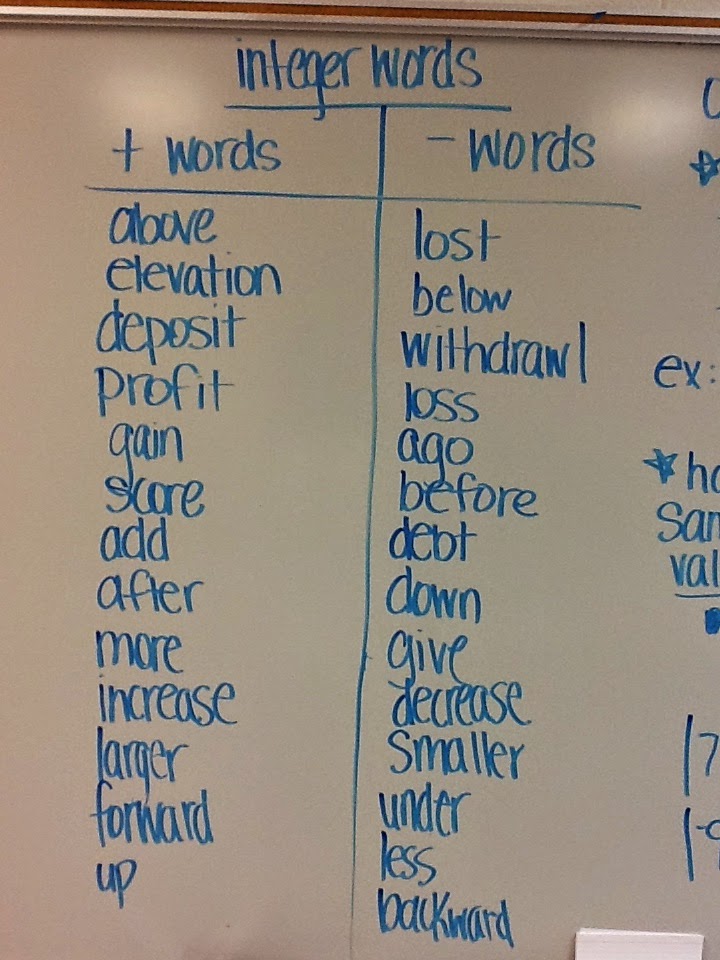 integer words
+ words
above
elevation
deposit
profit
gain
score
add
after
more
increase
larger
forward
up
- words
lost
below
withdrawl
loss
ago
before
debt
down
give
decrease
smaller
under
less
backward
ex:
val
|7